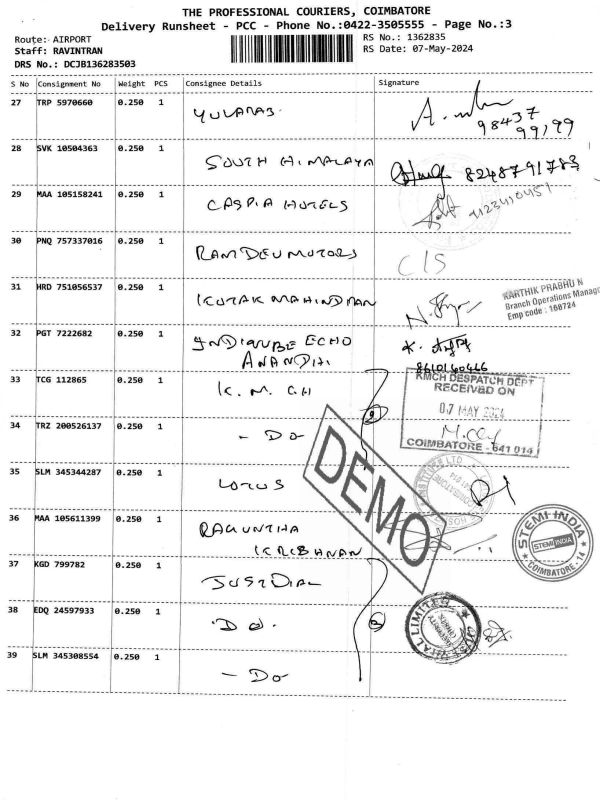 THE PROFESSIONAL COURIERS, COIMBATORE
Delivery Runsheet - PCC - Phone No.:0422-3505555 - Page No.:3
Route: AIRPORT
RS No.: 1362835
Staff: RAVINTRAN
RS Date: 07-May-2024
DRS No.: DCJB136283503
S No Consignment No Weight PCS Consignee Details Signature
27 TRP 5970660 0.250 1
98437
99199
28 SVK 10504363 0.250 1 SOUTH HIMALAYA 8248791783
29 MAA 105158241 0.250 1 CASPIA HOTELS 9123410451
30 PNQ 757337016 0.250 1 RAMDEV MOTORS C/S
31 HRD 751056537 0.250 1 KOTAK MAHINDRAN
KARTHIK PRABHU N
Branch Operations Manag
Emp code : 168724
32 PGT 7222682 0.250 1 ECHO
ANANDHI
8610160466
33 TCG 112865 0.250 1 K. M. C. H
KMCH DESPATCH DEPT
RECEIVED ON
07 MAY 2024
COIMBATORE - 641 014
34 TRZ 200526137 0.250 1 - Do
35 SLM 345344287 0.250 1 LOTUS
DEMO
36 MAA 105611399 0.250 1
STEMI INDIA
STEMI INDIA
COIMBATORE - 14
37 KGD 799782 0.250 1 JUSTDIAL
38 EDQ 24597933 0.250 1 Do.
39 SLM 345308554 0.250 1 - Do